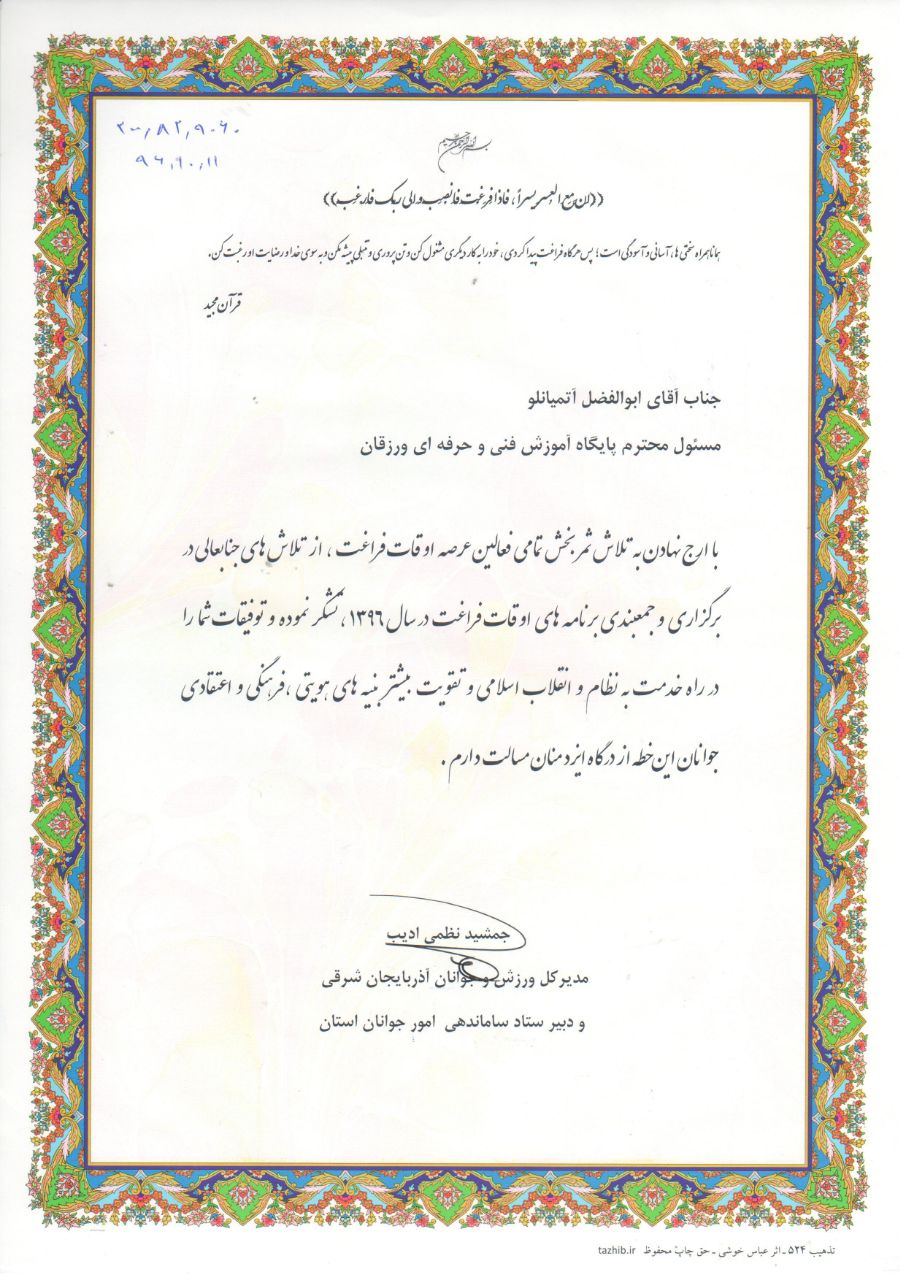 ۲۰٫۸۲٫۹۰۶۰
۹۶٫۱۰٫۱۱
بسم الله الرحمن الرحیم
((ان مع العسر یسراً، فاذا فرغت فانصب والی ربک فارغب))
همانا همراه سختی ها، آسانی و آسودگی است؛ پس هرگاه فراغت پیدا کردی، خود را به کار دیگری مشغول کن و تن پروری و تنبلی پیشه مکن و به سوی خدا و رضایت او رغبت کن.
قرآن مجید
جناب آقای ابوالفضل آتمیانلو
مسئول محترم پایگاه آموزش فنی و حرفه ای ورزقان
با ارج نهادن به تلاش ثمر بخش تمامی فعالین عرصه اوقات فراغت ، از تلاش های جنابعالی در
برگزاری و جمعبندی برنامه های اوقات فراغت در سال ۱۳۹۶، تشکر نموده و توفیقات شما را
در راه خدمت به نظام و انقلاب اسلامی و تقویت بیشتر بنیه های هویتی ،فرهنگی و اعتقادی
جوانان این خطه از درگاه ایزد منان مسالت دارم .
جمشید نظمی ادیب
مدیرکل ورزش و جوانان آذربایجان شرقی
و دبیر ستاد ساماندهی امور جوانان استان
تذهیب ۵۲۴ - اثر عباس خوشی - حق چاپ محفوظ tazhib.ir